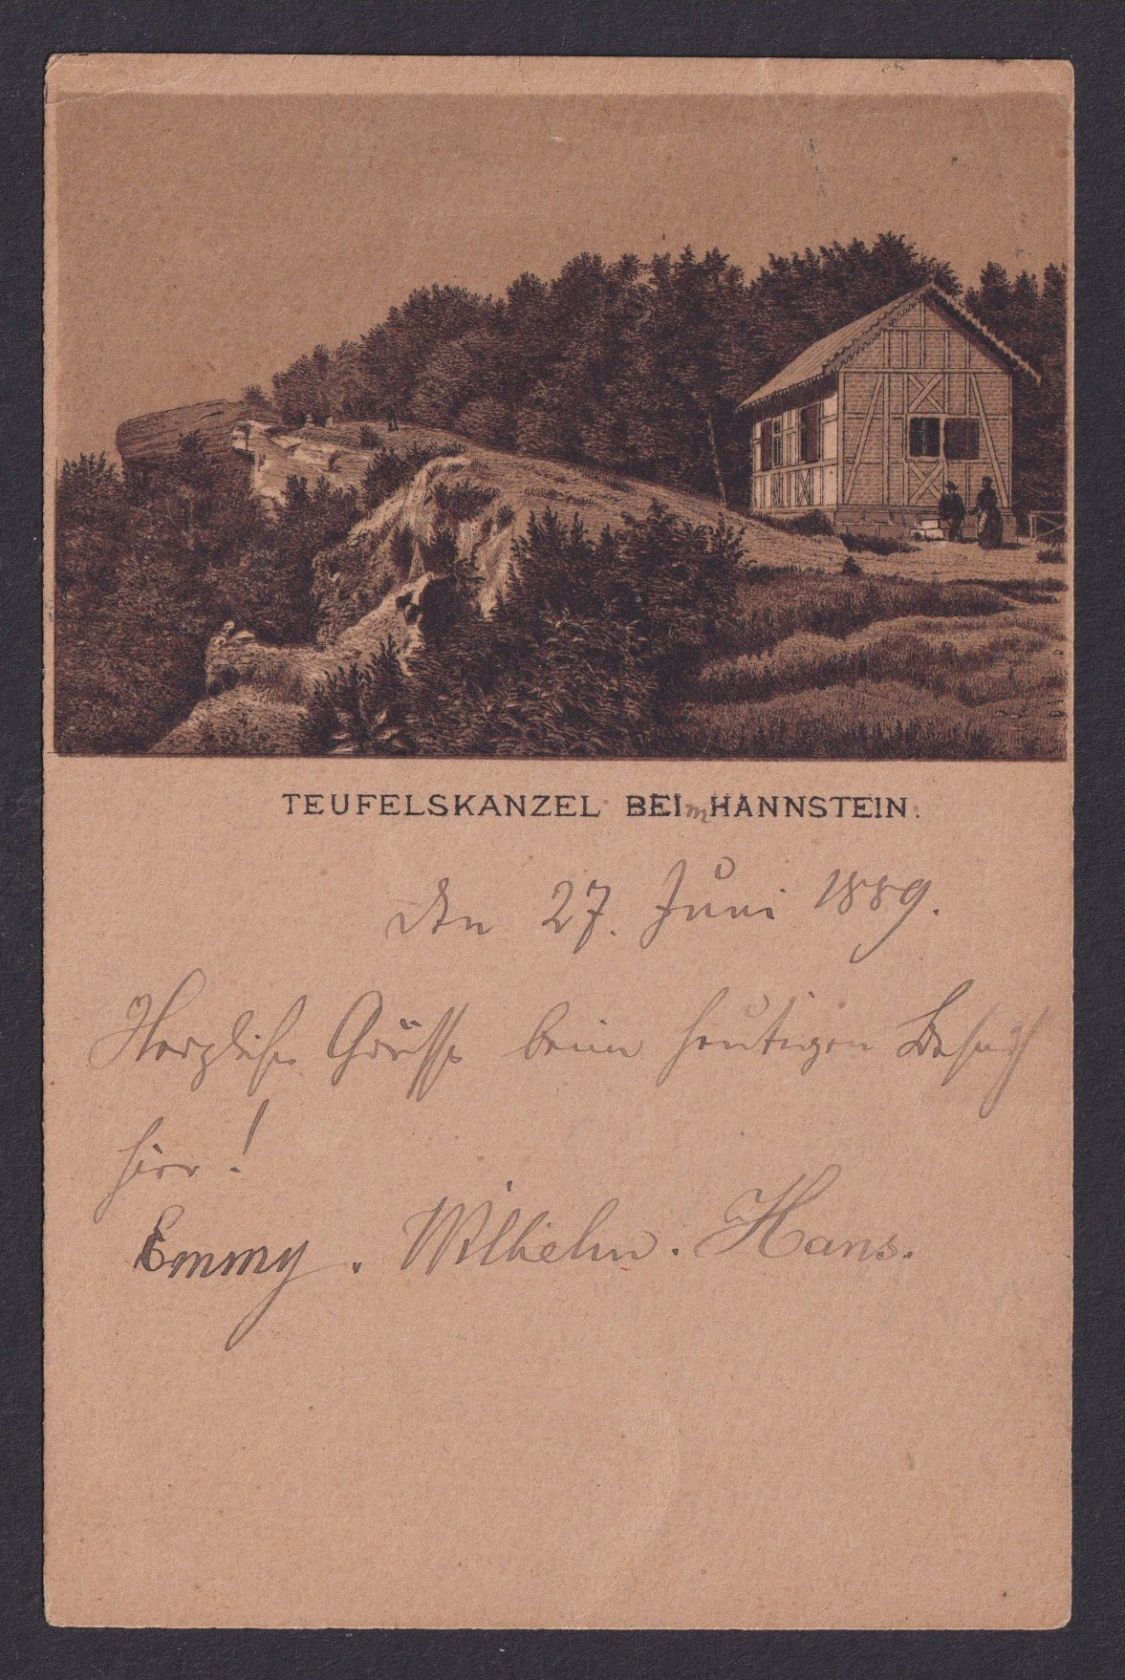 TEUFELSKANZEL BEIm HANNSTEIN.
den 27. Juni 1889.
Herzliche Grüsse beim heutigen Besuch
hier!
Emmy. Wilhelm. Hans.